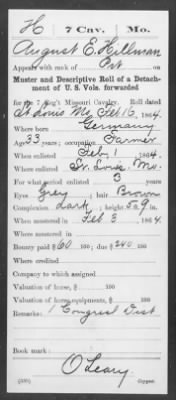 H | 7 Cav. | Mo.
August E. Hillman
Appears with rank of Pvt on
Muster and Descriptive Roll of a Detach-
ment of U. S. Vols. forwarded
for the 7 Reg't Missouri Cavalry. Roll dated
St Louis Mo. Feb 16, 1864.
Where born Germany
Age 33 years; occupation Farmer
When enlisted Feb. 1, 1864.
Where enlisted St. Louis, Mo.
For what period enlisted 3 years
Eyes Grey ; hair Brown
Complexion Dark ; height 5 ft. 9 in.
When mustered in Feb 3, 1864.
Where mustered in
Bounty paid $60 100; due $240 100
Where credited
Company to which assigned
Valuation of horse, $ 100
Valuation of horse equipments, $ 100
Remarks: 1 Congress'l Dist
Book mark:
O'Leary
(339) Copyist.